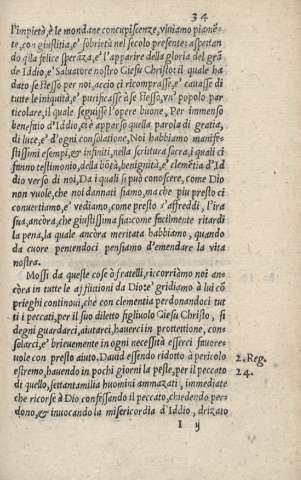 34
l'impietà, è le mondane concupiscenze, viuiamo piamē-
te, con giustitia, e' sobrietà nel secolo presente: aspettan
do q̄lla felice sperāza, e' l'apparire della gloria del grā
de Iddio, e' Saluatore nostro Giesu Christo: il quale ha
dato se stesso per noi, accio ci ricomprasse, e' cauasse di
tutte le iniquità, e' purificasse à se stesso, vn' popolo par
ticolare, il quale seguisse l'opere buone, Per immenso
benefitio d'Iddio, ci è apparso quella parola di gratia,
di luce, e' d'ogni consolatione, Noi habbiamo manife-
stissimi esempi, & infiniti, nella scrittura sacra, i quali ci
fanno testimonio, della bōtà, benignità, e' clemētia d'Id
dio verso di noi, Da i quali si può conoscere, come Dio
non vuole, che noi dannati siamo, ma che piu presto ci
conuertiamo, e' vediamo, come presto s'affreddi, l'ira
sua, ancora, che giustissima sia: come facilmente ritardi
la pena, la quale ancora meritata habbiamo, quando
da cuore pentendoci pensiamo d'emendare la vita
nostra.
Mossi da queste cose ò fratelli, ricorriāmo noi an-
cora in tutte le afflittioni da Dio: e' gridiamo à lui cō
prieghi continoui, che con clementia perdonandoci tut
ti i peccati, per il suo diletto figliuolo Giesu Christo, si
degni guardarci, aiutarci, hauerci in protettione, con-
solarci, e' brieuemente in ogni necessità esserci fauore-
uole con presto aiuto. Dauid essendo ridotto à pericolo
2. Reg.
estremo, hauendo in pochi giorni la peste, per il peccato
24.
di quello, settantamilia huomini ammazati, immediate
che ricorse à Dio confessando il peccato, chiedendo per
dono, & inuocando la misericordia d'Iddio, drizato
I y